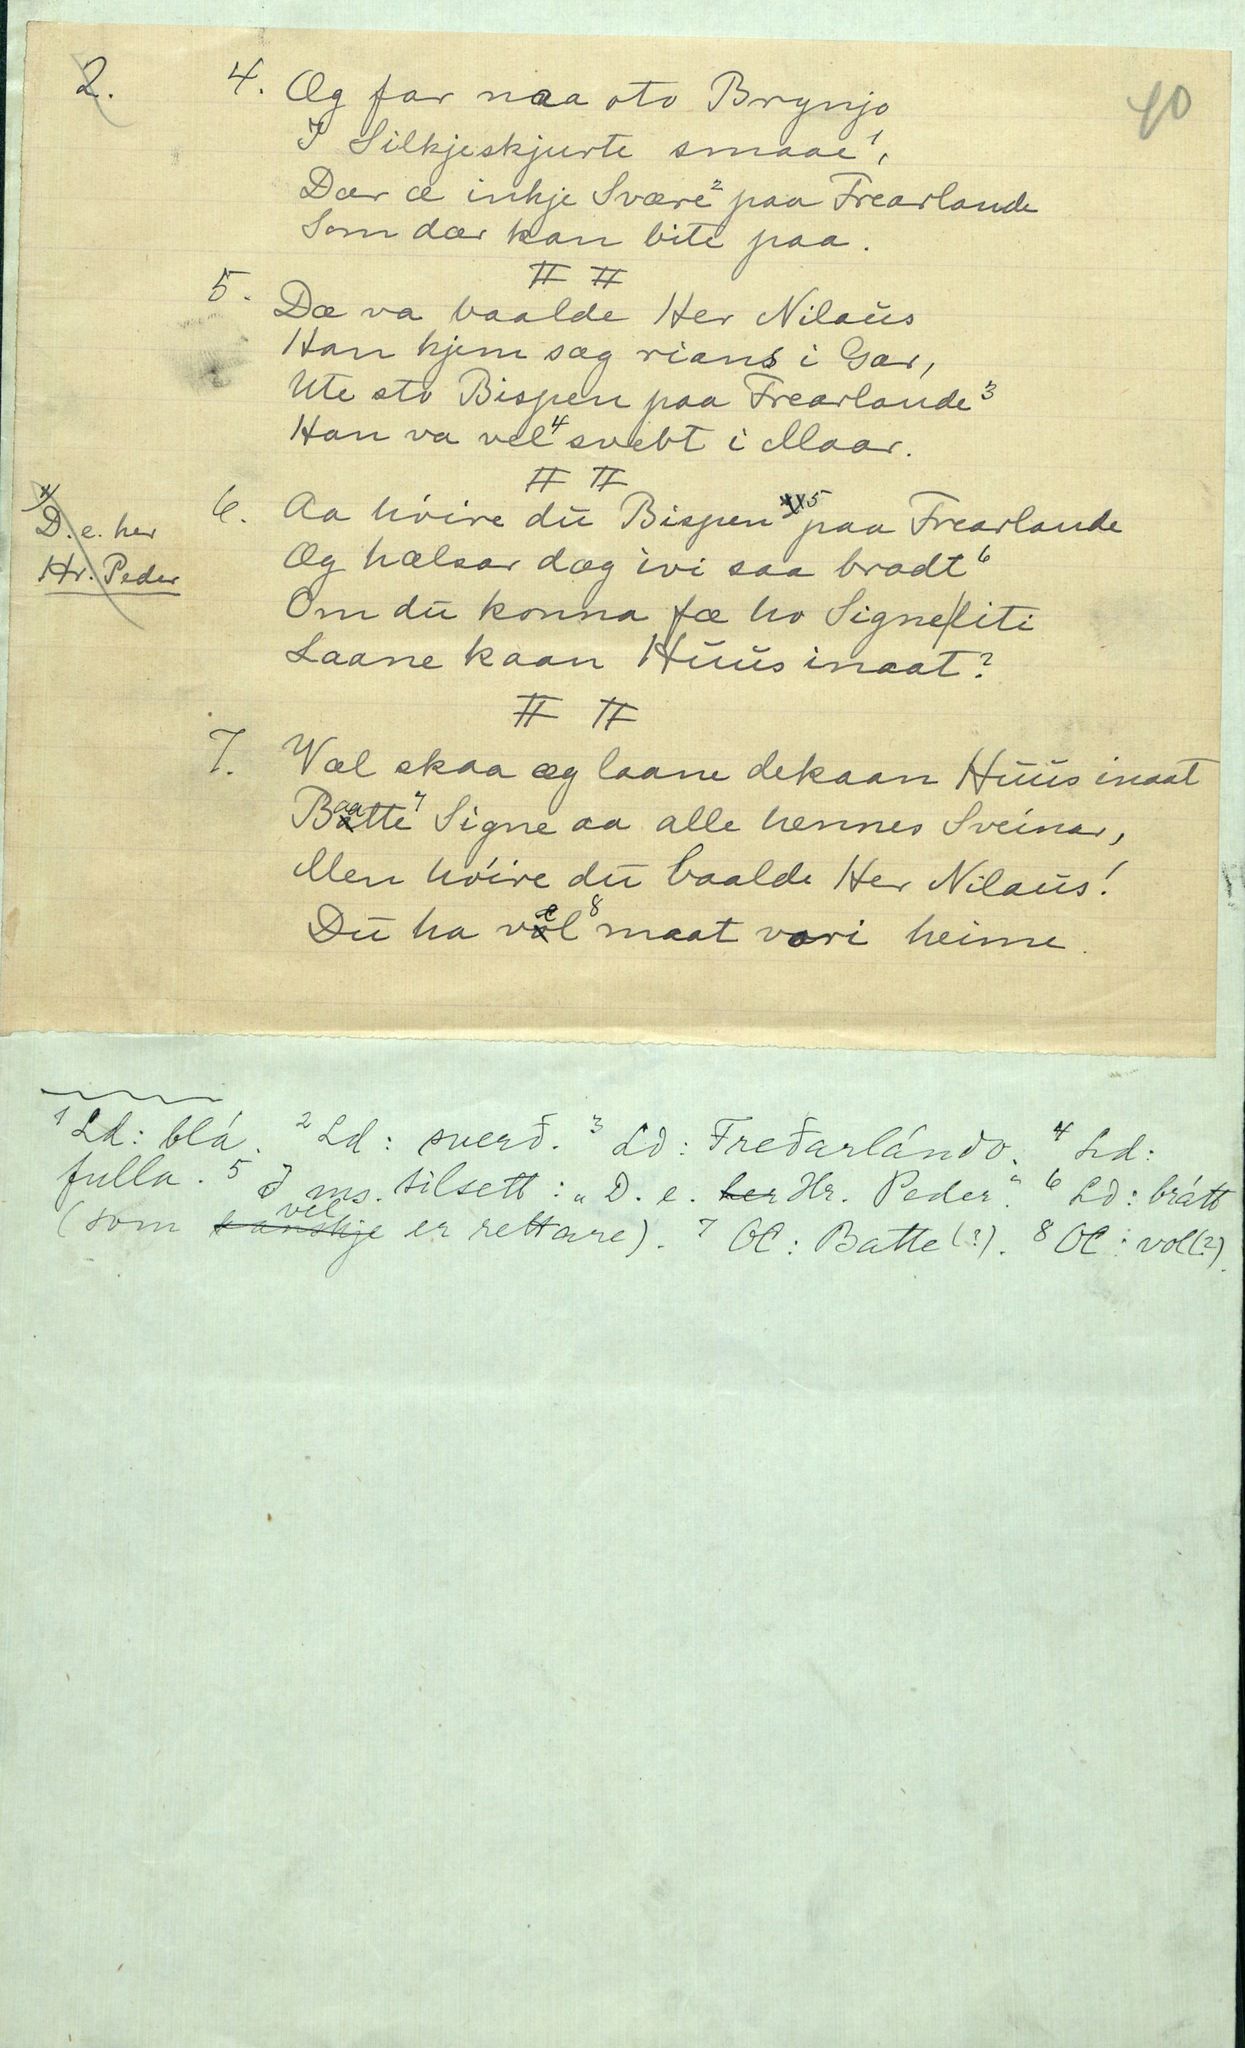 2.
40
4. Æg far naa oto Brynjo
I Silkjeskjurte smaae¹,
Dær æ inkje Svære² paa Frearlande
Som dær kan bite paa.
5. Dæ va baalde Her Nilaus
Han kjem sæg rians i Gar,
Ute sto Bispen paa Frearlande³
Han va vel⁴ svebt i Maar.
x) D. e. her
Hr. Peder
6. Aa höire du Bispen⁵ paa Frearlande
Æg hælsar dæg ivi saa bradt⁶
Om du konna fæ ho Signe liti
Laane kaan Huus inaat?
7. Wæl skaa æg laane dekaan Huus inaat
Baatte⁷ Signe aa alle hennes Sveinar,
Men höire du baalde Her Nilaus!
Du ha vel⁸ maat vari heime.
¹ Ld: blá. ² Ld: sverð. ³ Ld: Freðarlándo. ⁴ Ld:
fulla. ⁵ I ms. tilsett: „D. e. her Hr. Peder." ⁶ Ld: brátt
(som kanskje vel er rettare). ⁷ OC: Batte(?). ⁸ OC: vol(?).